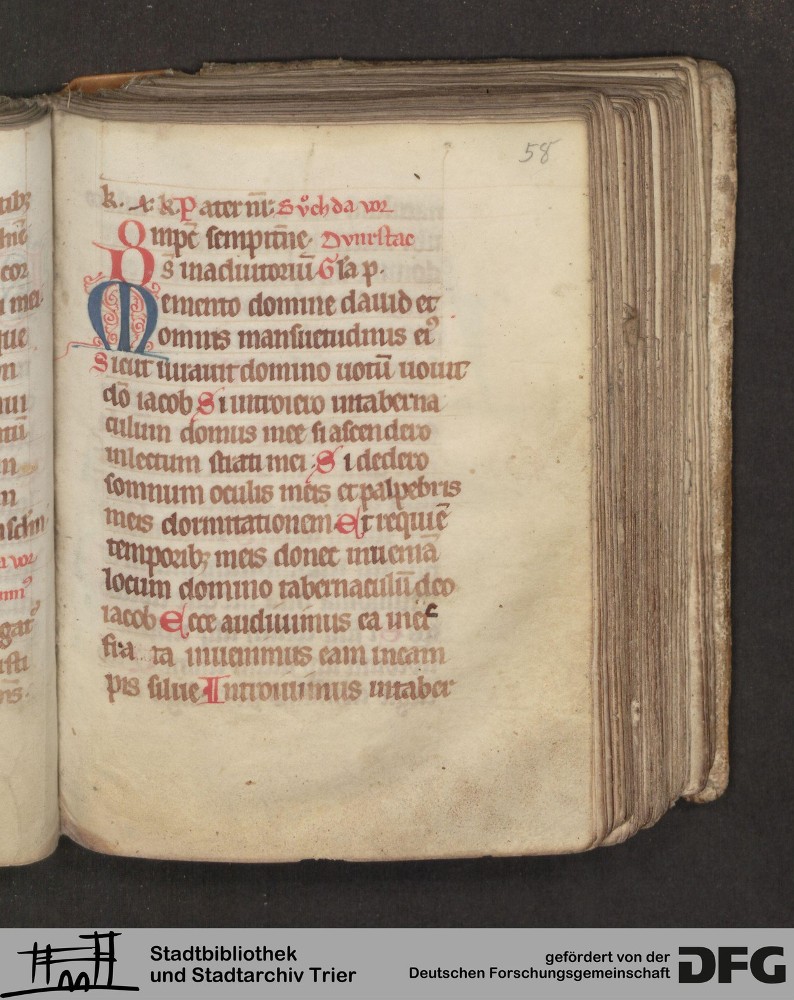 58
k. x. k. Pater nr̄. Sůch da vor
Omp̄c sempit̄ne. Dvnrstac
D̄s inadiutoriū Gl̄a p.
Memento domine dauid et
omnis mansuetudinis ei9
Sicut iurauit domino uotū uouit
dō iacob Si introiero intaberna
culum domus mee si ascendero
inlectum strati mei. Si dedero
somnum oculis meis et palpebris
meis dormitationem Et requiē
temporib; meis donec inueniā
locum domino tabernaculū deo
iacob Ecce audiuimus ea in ef
fra ta inuenimus eam incam
pis silue Introiuimus intaber
Stadtbibliothek
und Stadtarchiv Trier
gefördert von der
Deutschen Forschungsgemeinschaft
DFG